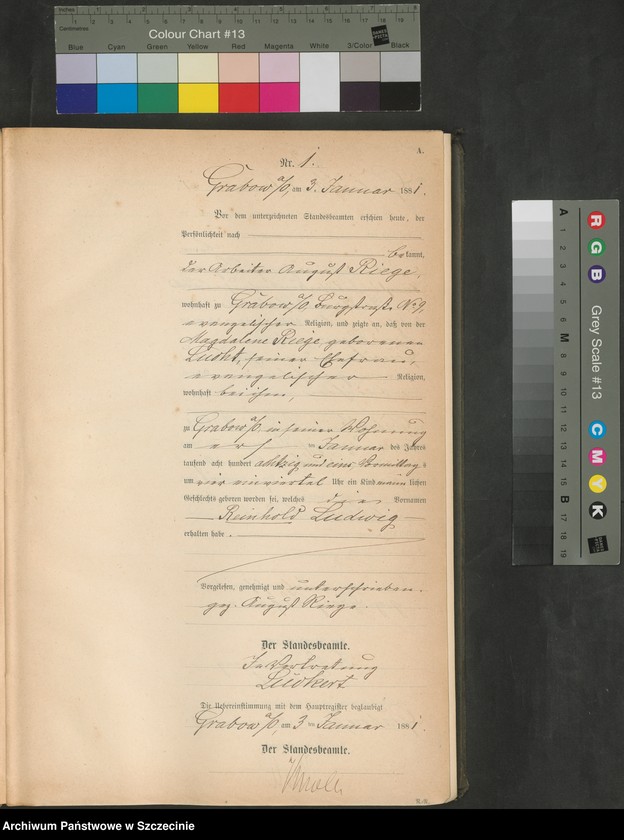 Inches 1 2 3 4 5 6 7 8
Centimetres 1 2 3 4 5 6 7 8 9 10 11 12 13 14 15 16 17 18 19
Colour Chart #13
Blue Cyan Green Yellow Red Magenta White 3/Color Black
A.
Nr. 1.
Grabow a/O, am 3. Januar 1881.
Vor dem unterzeichneten Standesbeamten erschien heute, der
Persönlichkeit nach
bekannt,
der Arbeiter August Riege,
wohnhaft zu Grabow a/O, Burgstraße No 9,
evangelischer Religion, und zeigte an, daß von der
Magdalene Riege, geborenen
Lucht, seiner Ehefrau,
evangelischer Religion,
wohnhaft bei ihm,
zu Grabow a/O. in seiner Wohnung
am ten Januar des Jahres
tausend acht hundert achtzig und eins, Vormittags
um vier einviertel Uhr ein Kind männlichen
Geschlechts geboren worden sei, welches die Vornamen
Reinhold Ludwig
erhalten habe.
Vorgelesen, genehmigt und unterschrieben.
gez. August Riege.
Der Standesbeamte.
In Vertretung
Die Uebereinstimmung mit dem Hauptregister beglaubigt
Grabow a/O, am 3ten Januar 1881.
Der Standesbeamte.
A 1 2 3 4 5 6 M 8 9 10 11 12 13 14 15 B 17 18 19
R G B
Grey Scale #13
C M Y K
Archiwum Państwowe w Szczecinie